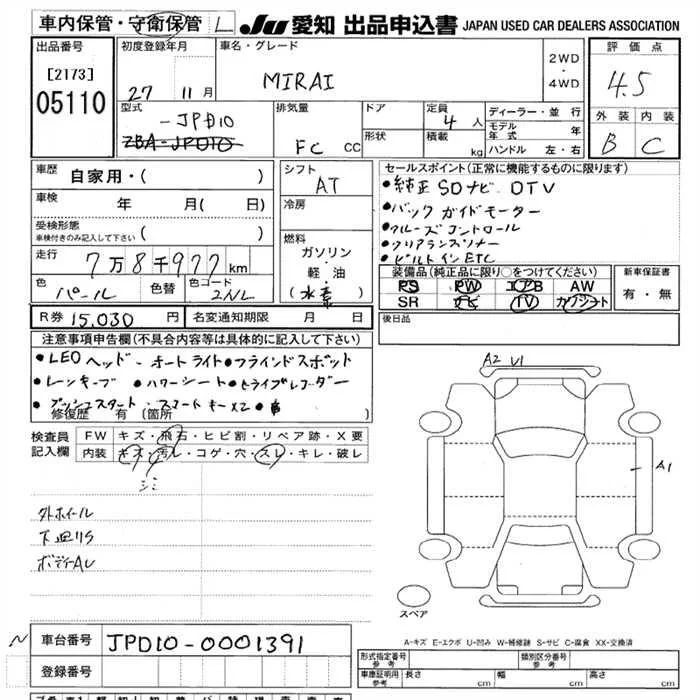 車内保管・守衛保管 L JU 愛知 出品申込書 JAPAN USED CAR DEALERS ASSOCIATION
出品番号 初度登録年月 車名・グレード 評価点
[2173] 2WD・4WD
05110 27 11月 MIRAI 4.5
型式 排気量 ドア 定員 ディーラー・並行 外装 内装
-JPD10 4人 モデル年式 年
ZBA-JPD10 FC CC 形状 積載 kg ハンドル 左・右 B C
車歴 自家用・( ) シフト AT セールスポイント(正常に機能するものに限ります)
車検 年 月(日) 冷房 ●純正SDナビ DTV
受検形態 ( ) ●バックガイドモーター
車検付きのみ記入して下さい ●クルーズコントロール
走行 7万8千977km 燃料 ガソリン・軽・油 (水素) ●クリアランスソナー
●ビルトインETC
色 パール 色替 色コード 2NL 装備品(純正品に限り○をつけてください) 新車保証書
PS PW エアB AW 有・無
SR ナビ TV カワシート
R券 15,030円 名変通知期限 月 日 後日品
注意事項申告欄(不具合内容等は具体的に記入して下さい)
●LEDヘッド・オートライト●ブラインドスポット
●レーンキープ ●パワーシート●ドライブレコーダー
●プッシュスタート・スマートキーX2●
修復歴 有 (箇所
A2 U1
検査員記入欄 FW キズ・飛石・ヒビ割・リペア跡・X要
内装 キズ・汚レ・コゲ・穴・スレ・キレ・破レ
シミ
A1
外ホイール
下廻りS
ボディAU
スペア
A-キズ E-エクボ U-凹み W-補修跡 S-サビ C-腐食 XX-交換済
N 車台番号 JPD10-0001391
登録番号
形式指定番号 参考 類別区分番号 参考
車庫証明用 参考 長さ cm 幅 cm 高さ cm